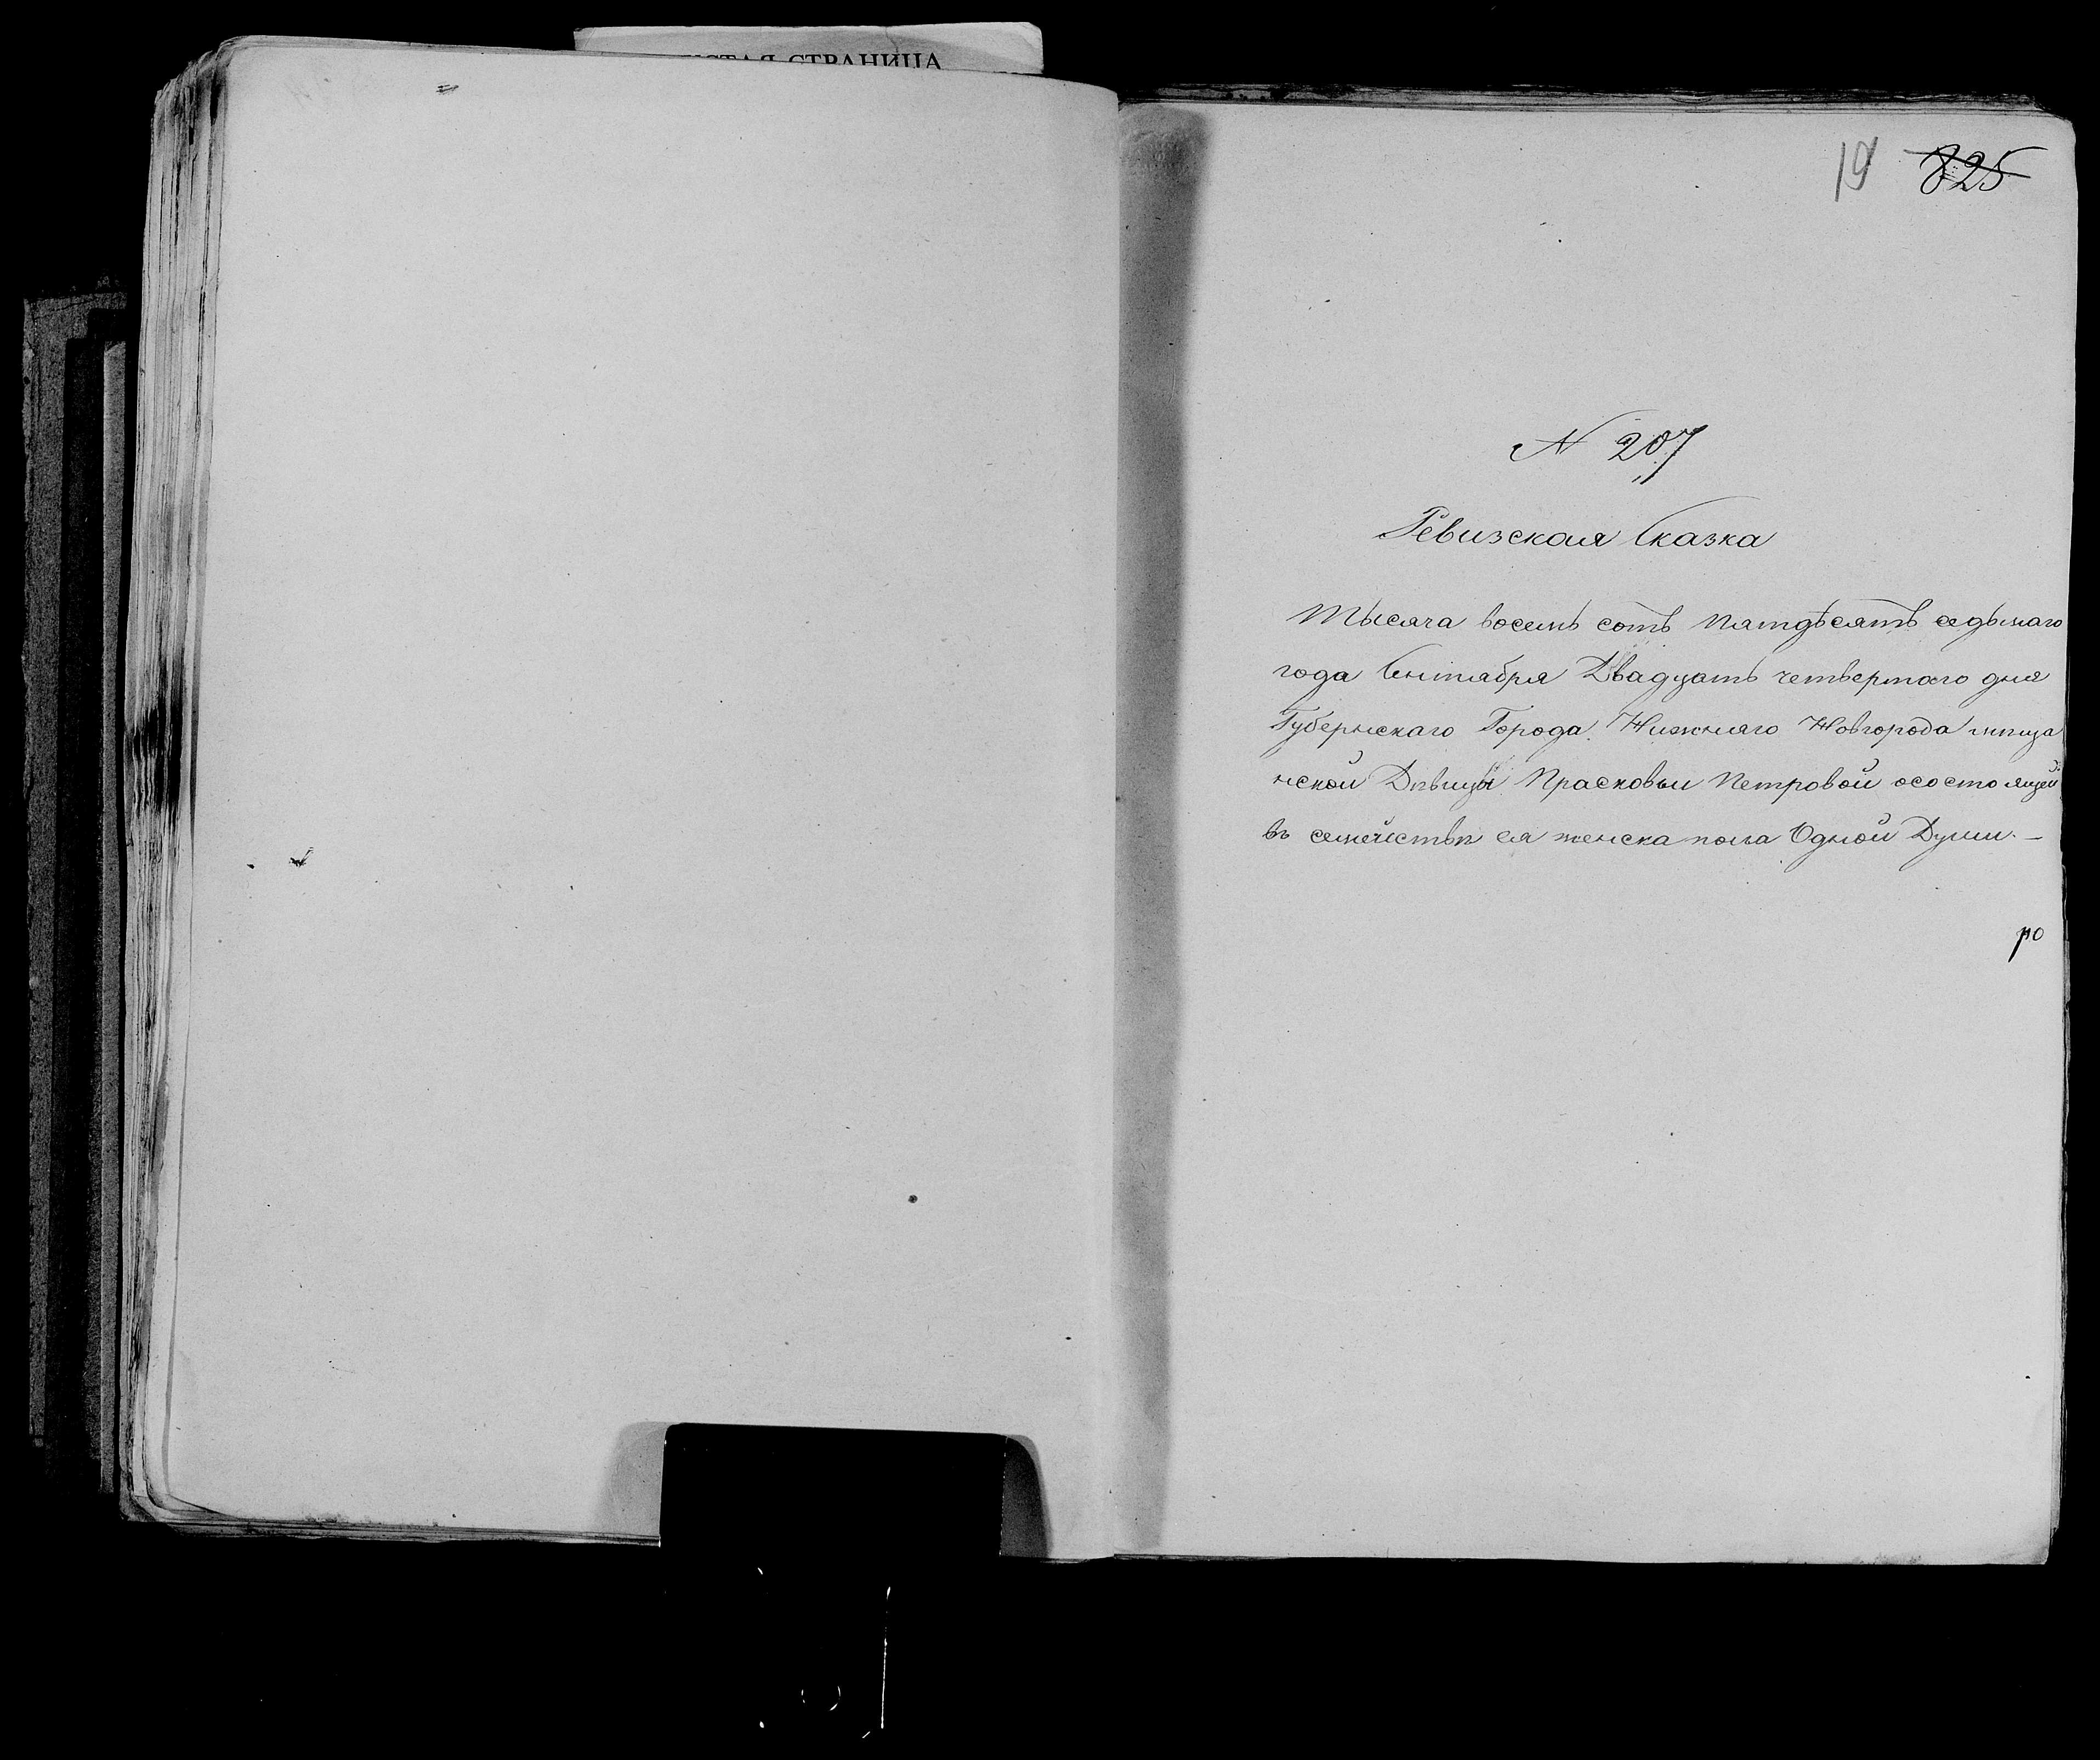 СТАЯ СТРАНИЦА
19 825
N 207
Ревизская Сказка
Тысяча восемь сотъ пятдѣсятъ седьмаго
года Сентября Двадцать четвертаго дня
Губернскаго Города Нижняго Новгорода мѣща
нской Дѣвицы Прасковьи Петровой осостоящей
въ семействѣ ея женска пола Одной Души. —